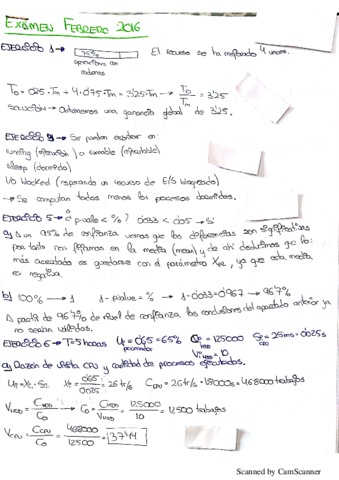 EXAMEN FEBRERO 2016
EJERCICIO 1 → 75% El recurso se ha mejorado 4 veces.
operaciones con
enteros
To = 025·Tm + 4·075·Tm = 3'25·Tm → To/Tm = 3'25
SOLUCIÓN → Obtenemos una ganancia global de 3'25.
EJERCICIO 3 → Se pueden encontrar en:
running (ejecución) o runnable (ejecutable)
sleep (dormido)
I/O blocked (esperando un recurso de E/S bloqueado)
→ Se computan todos menos los procesos dormidos.
EJERCICIO 5 → ¿ p-value < % ? 0'033 < 0'05 → Sí
a) A un 95% de confianza vemos que las diferencias son significativas
por tanto nos fijamos en la media (mean) y de ahí deducimos que lo
más acertado es quedarse con el parámetro, ya que esta media
es negativa.
b) 100% → 1 1 - pvalue = % → 1 - 0'033 = 0'967 → 96'7%
A partir de 96'7% de nivel de confianza las conclusiones del apartado anterior ya
no serán válidas.
EJERCICIO 6 → T = 5 horas = 0'65 = 65% = 125000 = 25ms = 0'025s
procesador = 10
a) Razón de visita CPU y cantidad de procesos ejecutados.
= 0'65/0'025 = 26 tr/s = 26 tr/s · 18000s = 468000 trabajos
V_HDD = C_HDD/C_0 → C_0 = C_HDD/V_HDD = 125000/10 = 12500 trabajos
V_CPU = C_CPU/C_0 = 468000/12500 = 37'44
Scanned by CamScanner